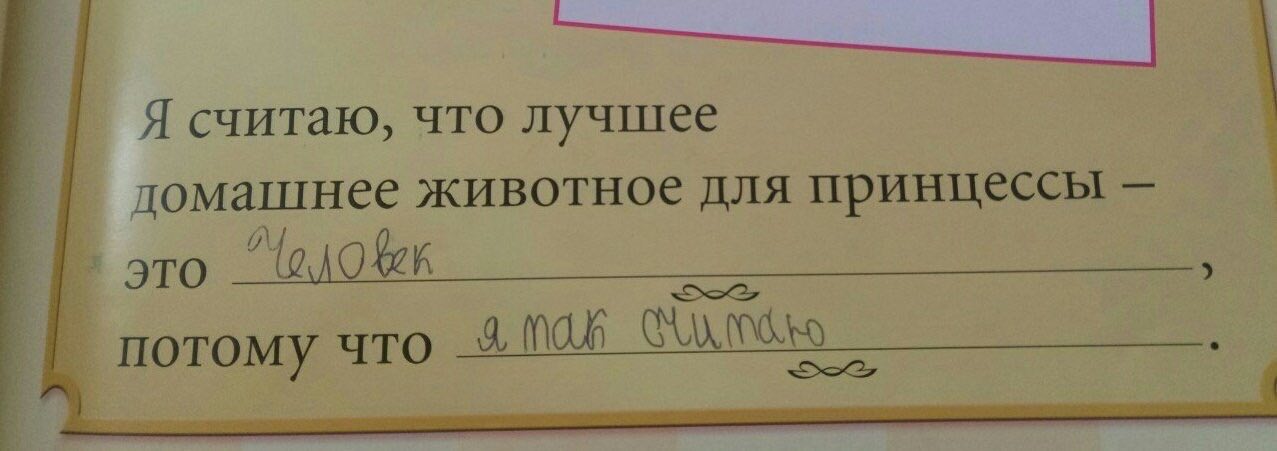 Я считаю, что лучшее
домашнее животное для принцессы –
это Человек,
потому что я так считаю.